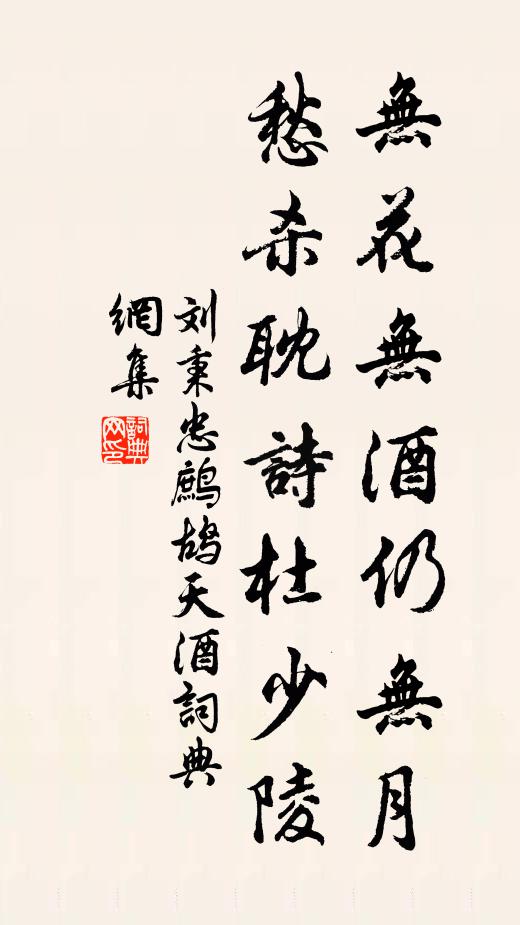 無花無酒仍無月
愁杀耽詩杜少陵
刘秉忠鷓鴣天酒詞典
網集
詞典
网印